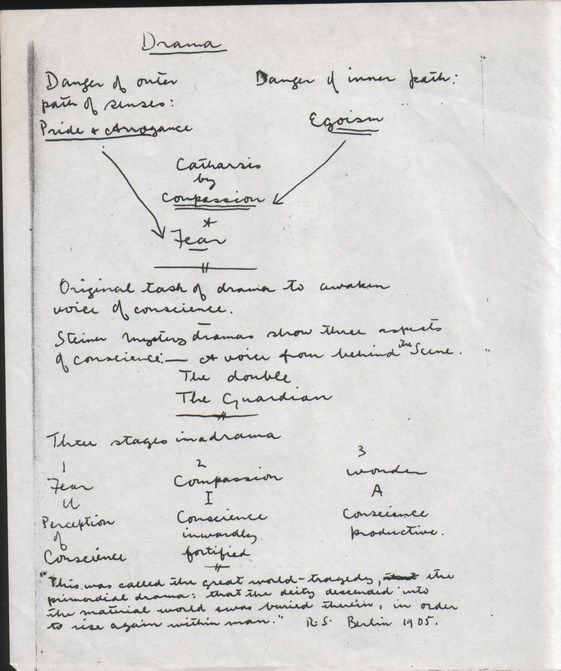 Drama
Danger of outer
path of senses:
Pride & Arrogance
Danger of inner path:
Egoism
Catharsis
by
Compassion
+
Fear
Original task of drama to awaken
voice of conscience.
Steiner mystery dramas show three aspects
of conscience:— A voice from behind the Scene.
The double
The Guardian
Three stages in a drama
1
Fear
U
Perception
of
Conscience
2
Compassion
I
Conscience
inwardly
fortified
3
wonder
A
Conscience
productive.
"This was called the great world-tragedy, the
primordial drama: that the deity descended into
the material world & was buried therein, in order
to rise again within man." R.S. Berlin 1905.